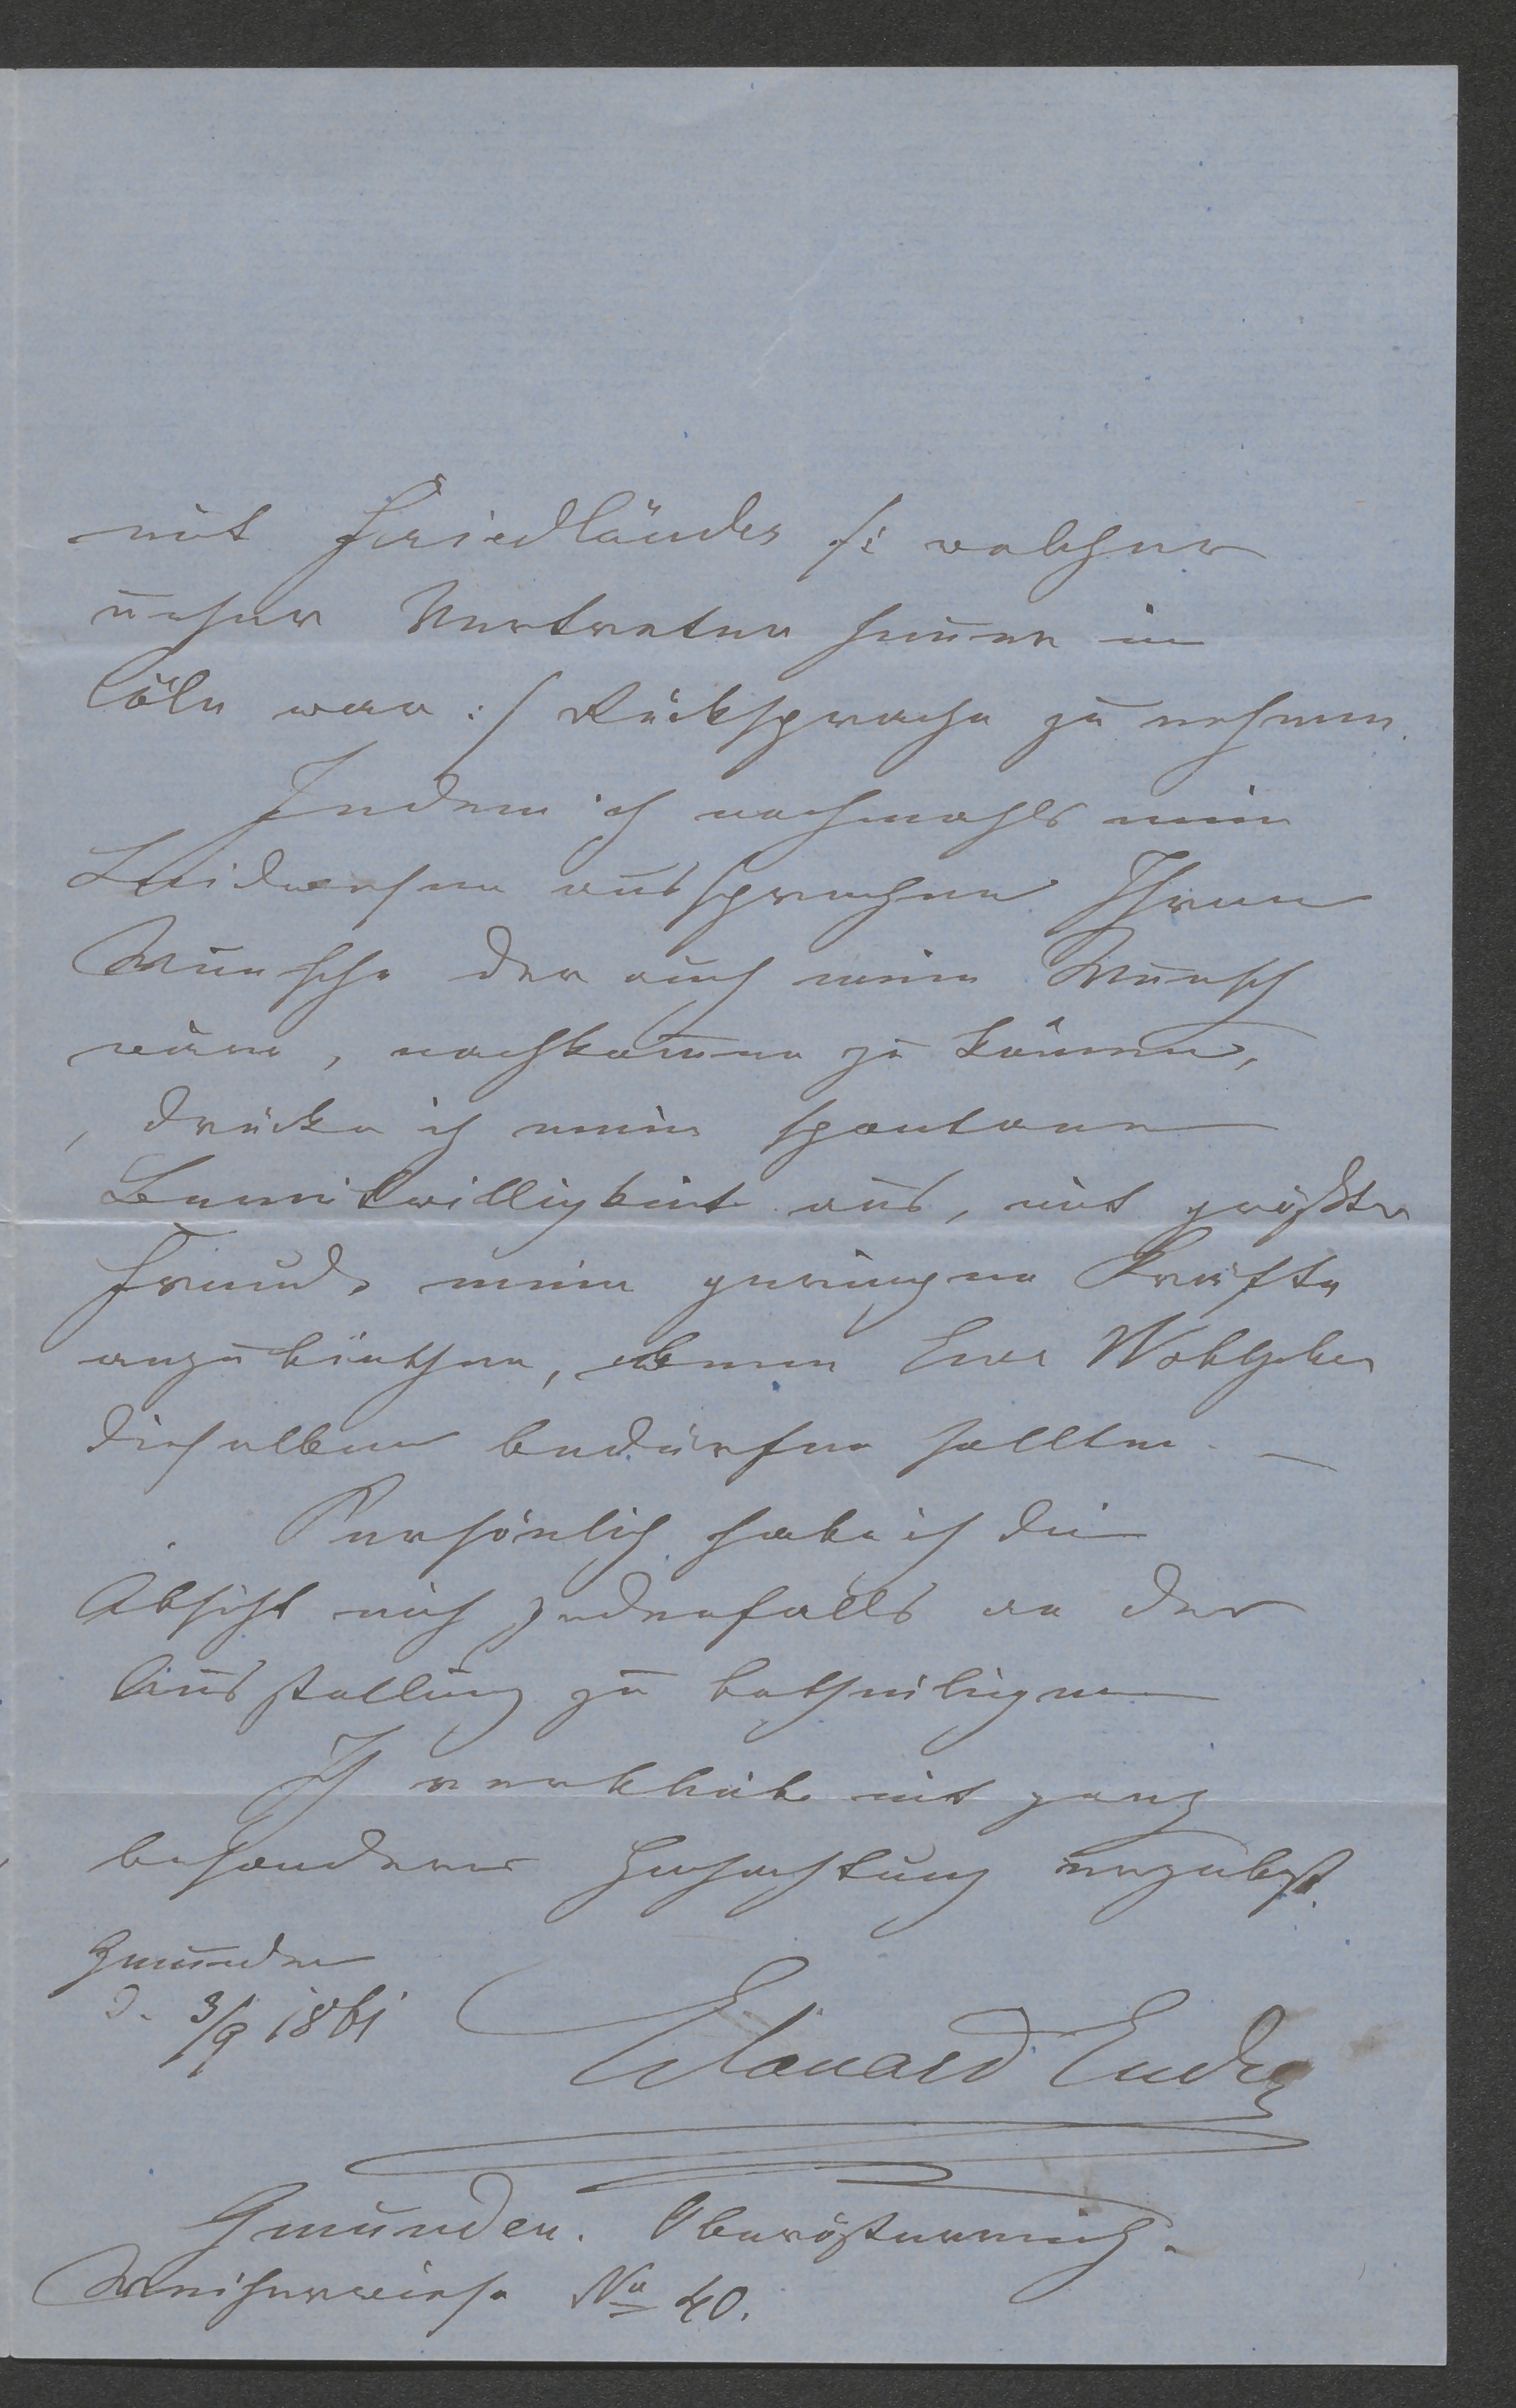 mit Friedländer /: welcher
unser Vertreter heuer in
Cöln war :/ Rücksprache zu nehmen.
Indem ich nochmahls mein
Leidwesen ausspreche Ihrem
Wunsche der auch mein Wunsch
wäre, nachkommen zu können,
, drücke ich meine spontane
Bereitwilligkeit aus, mit größter
Freude meine geringen Kräfte
anzubiethen, wenn Euer Wohlgeboren
dieselben bedürfen sollten. —
Persönlich habe ich die
Absicht mich jedenfalls an der
Ausstellung zu betheiligen
Ich verbleibe mit ganz
besonderer Hochachtung ergebenst.
Gmunden
d. 3/9 1861
Eduard Ender
Gmunden. Oberösterreich.
Weiherwiese No 40.